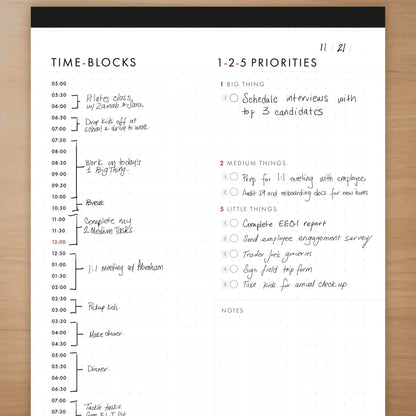 11 / 21 /
TIME-BLOCKS
05:00
05:30
06:00
06:30
07:00
07:30
08:00
08:30
09:00
09:30
10:00
10:30
11:00
11:30
12:00
12:30
01:00
01:30
02:00
02:30
03:00
03:30
04:00
04:30
05:00
05:30
06:00
06:30
07:00
07:30
Pilates class
w/ Zainab & Sara
Drop kids off at
school & drive to work
Work on today's
1 Big Thing.
Break
Complete my
2 Medium Tasks.
1:1 meeting w/ Abraham
Pickup kids
Make dinner
Dinner
Tackle tasks
from 5 L.T. list
1-2-5 PRIORITIES
1 BIG THING
1 Schedule interviews with
top 3 candidates
2 MEDIUM THINGS
1 Prep for 1:1 meeting with employee
2 Audit I-9 and onboarding docs for new hires
5 LITTLE THINGS
1 Complete EEO-1 report
2 Send employee engagement survey
3 Trader Joe's groceries
4 Sign field trip form
5 Take kids for annual check up
NOTES